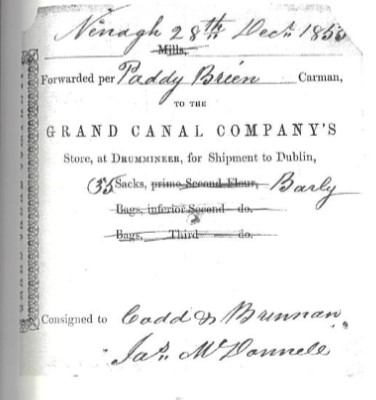 Nenagh 28th Decr. 1850
Mills,
Forwarded per Paddy Brien Carman,
TO THE
GRAND CANAL COMPANY'S
Store, at DRUMMINEER, for Shipment to Dublin,
35 Sacks, prime Second Flour, Barly
Bags, inferior Second do.
Bags, Third do.
Consigned to Codd & Brennan
Jas. McDonnell